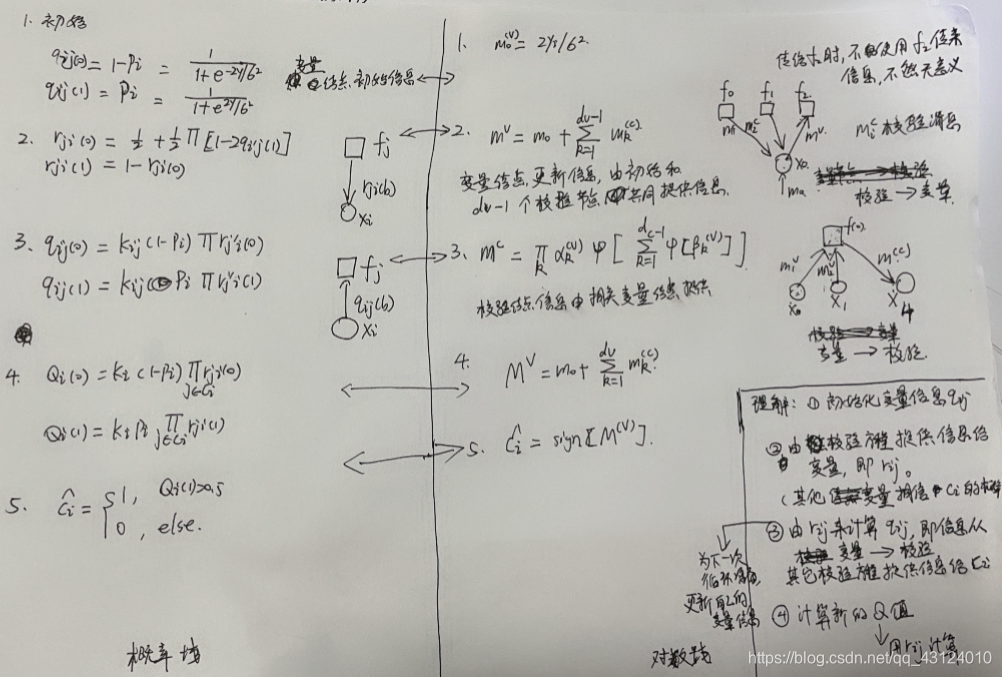 1. 初始
qij(0) = 1-Pi = 1/(1+e^-2y/б²)
qij(1) = Pi = 1/(1+e^2y/б²)
变量结点初始信息
2. rji(0) = ½ + ½ Π [1-2qij(1)]
rji(1) = 1 - rji(0)
fj
rji(b)
xi
3. qij(0) = Kij (1-Pi) Π rj'i(0)
qij(1) = Kij Pi Π rj'i(1)
fj
qij(b)
xi
4. Qi(0) = Ki (1-Pi) Π_{j∈Ci} rji(0)
Qi(1) = Ki Pi Π_{j∈Ci} rji(1)
5. Ĉi = { 1, Qi(1)>0.5
0, else.
概率域
1. m₀^(V) = 2y/б².
2. m^V = m₀ + Σ_{k=1}^{dv-1} m_k^(c)
变量结点, 更新信息, 由初始和
dv-1 个校验节点共同提供信息.
3. m^c = Π_k α_k^(V) φ [ Σ_{k=1}^{dc-1} φ[β_k^(V)] ].
校验结点信息由相关变量信息提供
4. M^V = m₀ + Σ_{k=1}^{dv} m_k^(c).
5. Ĉi = sign[M^(V)].
对数域
传给f₂时, 不使用f₂传来
信息, 不然无意义
f₀ f₁ f₂
m^V
x₀
m₀
校验消息
校验 → 变量
f(0)
m^(c)
x₀ x₁ x₄
变量 → 校验.
理解: ① 初始化变量信息qij
② 由校验方程提供信息给
变量, 即rij。
③ 由rij来计算qij, 即信息从
变量 → 校验
其它校验方程提供信息给Ci
为下一次
循环
更新自己的
变量信息
④ 计算新的Q值
用rij计算
https://blog.csdn.net/qq_43124010